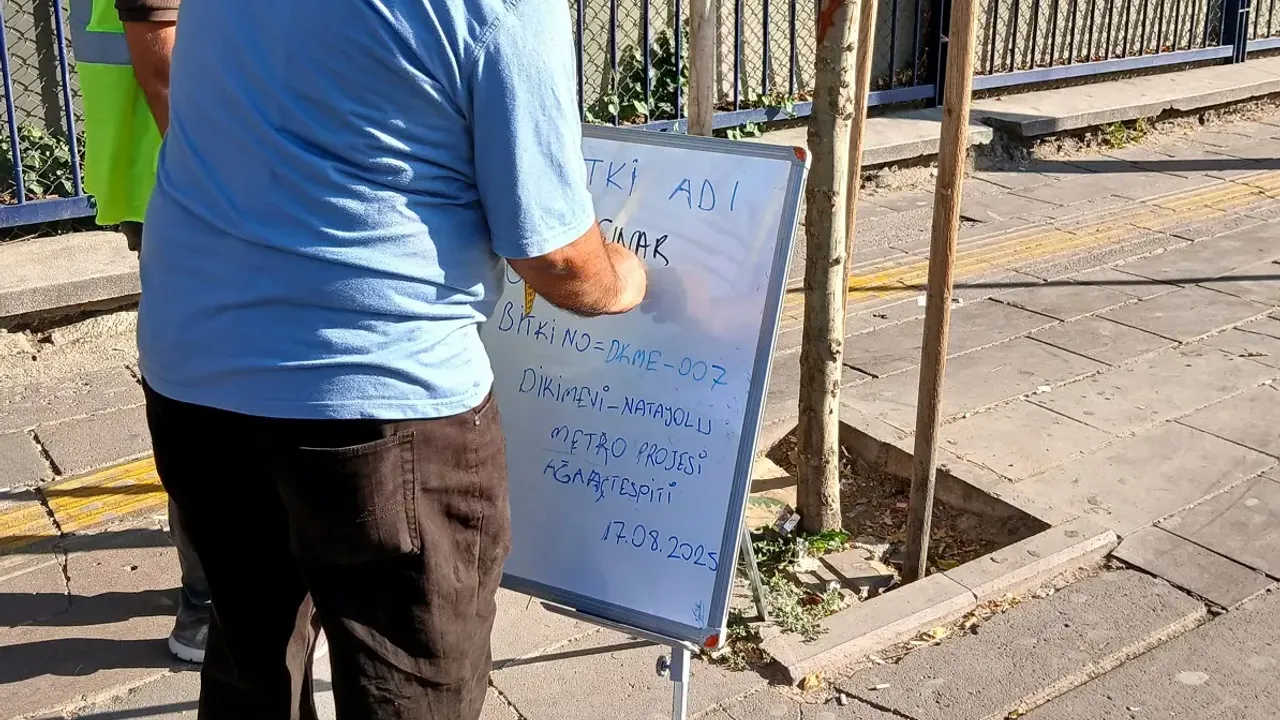 TKİ ADI
ÇINAR
BİTKİ NO=DKME-007
DİKİMEVİ-NATAYOLU
METRO PROJESİ
AĞAÇ TESPİTİ
17.08.2025